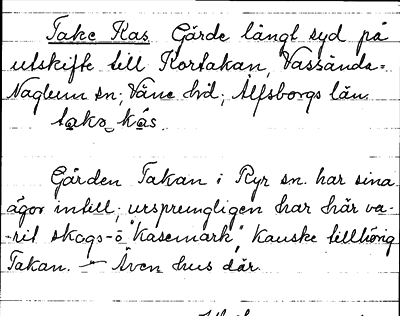 Take Kas Gärde långt syd på
utskifte till Kortakan, Vassända=
Naglum sn; Väne hd, Älfsborgs län.
tako kás
Gården Takan i Ryr sn. har sina
ägor intill; ursprungligen har här va-
-rit skogs-ö "Kasemark", kanske tillhörig
Takan. — Även hus där.